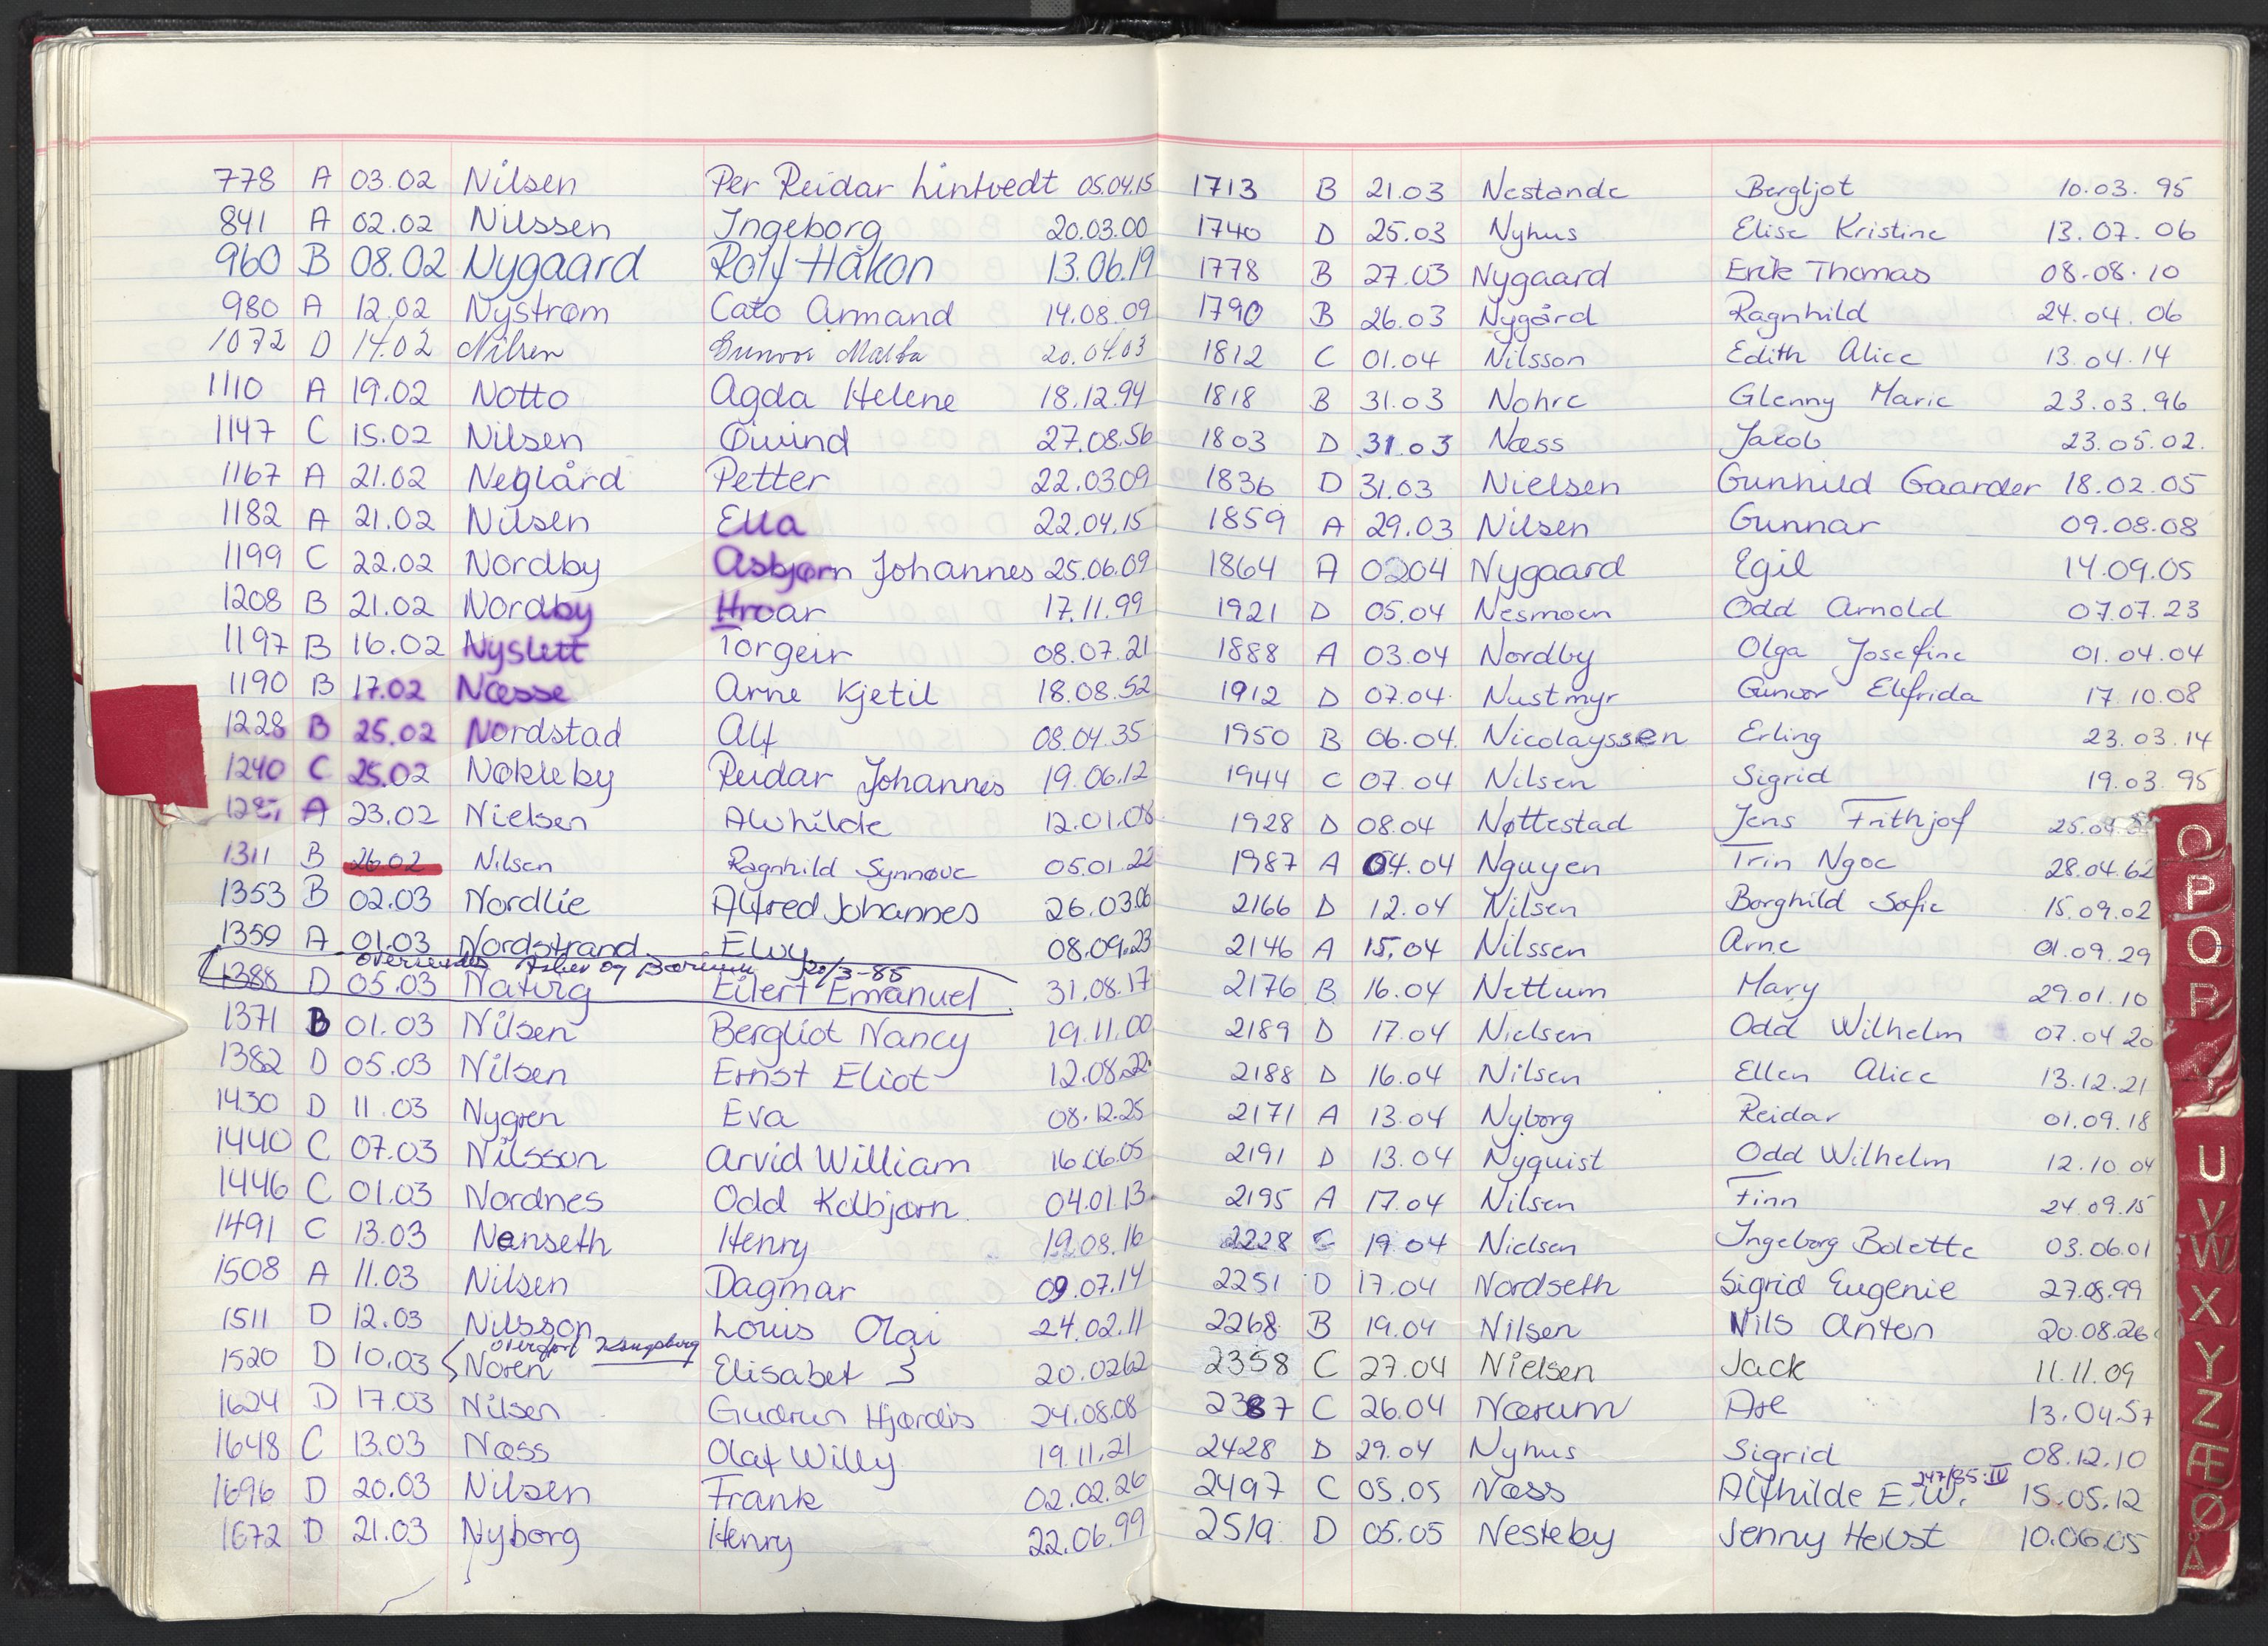 778 A 03.02 Nilsen Per Reidar Lintvedt 05.04.15
841 A 02.02 Nilssen Ingeborg 20.03.00
960 B 08.02 Nygaard Rolf Håkon 13.06.19
980 A 12.02 Nystrøm Cato Armand 14.08.09
1072 D 14.02 Nilsen Gunvor 20.04.03
1110 A 19.02 Notto Agda Helene 18.12.94
1147 C 15.02 Nilsen Øivind 27.08.56
1167 A 21.02 Neglård Petter 22.03.09
1182 A 21.02 Nilsen Ella 22.04.15
1199 C 22.02 Nordby Asbjørn Johannes 25.06.09
1208 B 21.02 Nordby Hroar 17.11.99
1197 B 16.02 Nyslett Torgeir 08.07.21
1190 B 17.02 Næsse Arne Kjetil 18.08.52
1228 B 25.02 Nordstad Alf 08.04.35
1240 C 25.02 Nøkleby Reidar Johannes 19.06.12
A 23.02 Nielsen Alvhilde 12.01.08
1311 B 26.02 Nilsen Ragnhild Synnøve 05.01.22
1353 B 02.03 Nordlie Alfred Johannes 26.03.06
1359 A 01.03 Nordstrand Elvy 08.09.23
oversendes Asker og Bærum 20/3-85
1388 D 05.03 Natvig Eilert Emanuel 31.08.17
1371 B 01.03 Nilsen Bergliot Nancy 19.11.00
1382 D 05.03 Nilsen Ernst Eliot 12.08.22
1430 D 11.03 Nygren Eva 08.12.25
1440 C 07.03 Nilsson Arvid William 16.06.05
1446 C 01.03 Nordnes Odd Kolbjørn 04.01.13
1491 C 13.03 Nenseth Henry 19.08.16
1508 A 11.03 Nilsen Dagmar 09.07.14
1511 D 12.03 Nilsson Louis Olai 24.02.11
overført Kongsberg
1520 D 10.03 Noren Elisabet S 20.02.62
1624 D 17.03 Nilsen Gudrun Hjørdis 24.08.08
1648 C 13.03 Næss Olaf Willy 19.11.21
1696 D 20.03 Nilsen Frank 02.02.26
1672 D 21.03 Nyborg Henry 22.06.99
1713 B 21.03 Nestande Bergljot 10.03.95
1740 D 25.03 Nyhus Elise Kristine 13.07.06
1778 B 27.03 Nygaard Erik Thomas 08.08.10
1790 B 26.03 Nygård Ragnhild 24.04.06
1812 C 01.04 Nilsson Edith Alice 13.04.14
1818 B 31.03 Nohre Glenny Marie 23.03.96
1803 D 31.03 Næss Jacob 23.05.02.
1836 D 31.03 Nielsen Gunhild Gaarder 18.02.05
1859 A 29.03 Nilsen Gunnar 09.08.08
1864 A 0204 Nygaard Egil 14.09.05
1921 D 05.04 Nesmoen Odd Arnold 07.07.23
1888 A 03.04 Nordby Olga Josefine 01.04.04
1912 D 07.04 Nustmyr Gunvor Elefrida 17.10.08
1950 B 06.04 Nicolayssen Erling 23.03.14
1944 C 07.04 Nilsen Sigrid 19.03.95
1928 D 08.04 Nøttestad Jens Frithjof 25.04
1987 A 04.04 Nguyen Trin Ngoc 28.04.62
2166 D 12.04 Nilsen Borghild Sofie 15.09.02
2146 A 15.04 Nilssen Arne 01.09.29
2176 B 16.04 Nettum Mary 29.01.10
2189 D 17.04 Nielsen Odd Wilhelm 07.04.20
2188 D 16.04 Nilsen Ellen Alice 13.12.21
2171 A 13.04 Nyborg Reidar 01.09.18
2191 D 13.04 Nyquist Odd Wilhelm 12.10.04
2195 A 17.04 Nilsen Finn 24.09.15
2228 C 19.04 Nielsen Ingeborg Bolette 03.06.01
2251 D 17.04 Nordseth Sigrid Eugenie 27.08.99
2268 B 19.04 Nilsen Nils Anton 20.08.26
2358 C 27.04 Nielsen Jack 11.11.09
2387 C 26.04 Nærum Are 13.04.57
2428 D 29.04 Nyhus Sigrid 08.12.10
2497 C 05.05 Næss Alfhilde E.W. 247/85:IV 15.05.12
2519 D 05.05 Nesteby Jenny Helvst 10.06.05
O
P
Q
R
U
V
W
X
Y
Z
Æ
Ø
Å